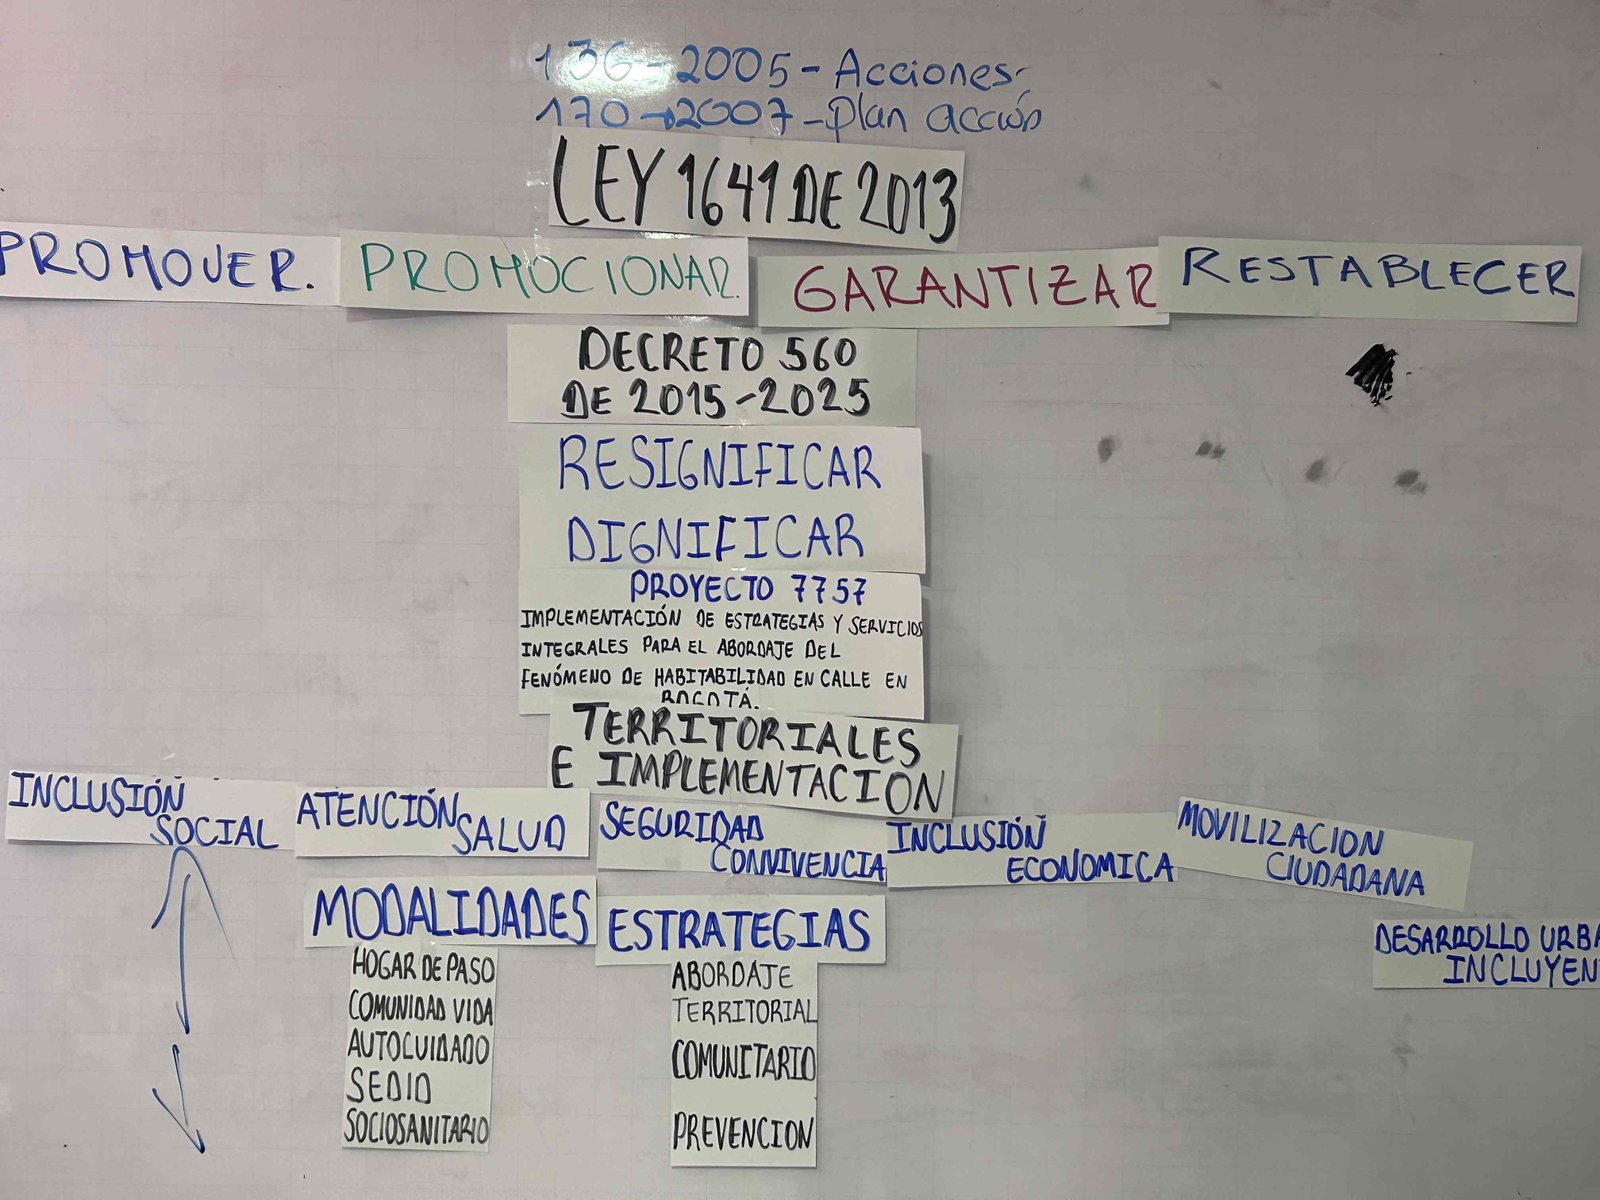 136-2005-Acciones-
170→2007-Plan acción
LEY 1641 DE 2013
PROMOVER.
PROMOCIONAR.
GARANTIZAR
RESTABLECER
DECRETO 560
DE 2015-2025
RESIGNIFICAR
DIGNIFICAR
PROYECTO 7757
IMPLEMENTACIÓN DE ESTRATEGIAS Y SERVICIOS
INTEGRALES PARA EL ABORDAJE DEL
FENÓMENO DE HABITABILIDAD EN CALLE EN
BOGOTÁ.
TERRITORIALES
E IMPLEMENTACIÓN
INCLUSIÓN
SOCIAL
ATENCIÓN
SALUD
SEGURIDAD
CONVIVENCIA
INCLUSIÓN
ECONOMICA
MOVILIZACION
CIUDADANA
DESARROLLO URBA
INCLUYEN
MODALIDADES
HOGAR DE PASO
COMUNIDAD VIDA
AUTOCUIDADO
SEDID
SOCIOSANITARIO
ESTRATEGIAS
ABORDAJE
TERRITORIAL
COMUNITARIO
PREVENCION